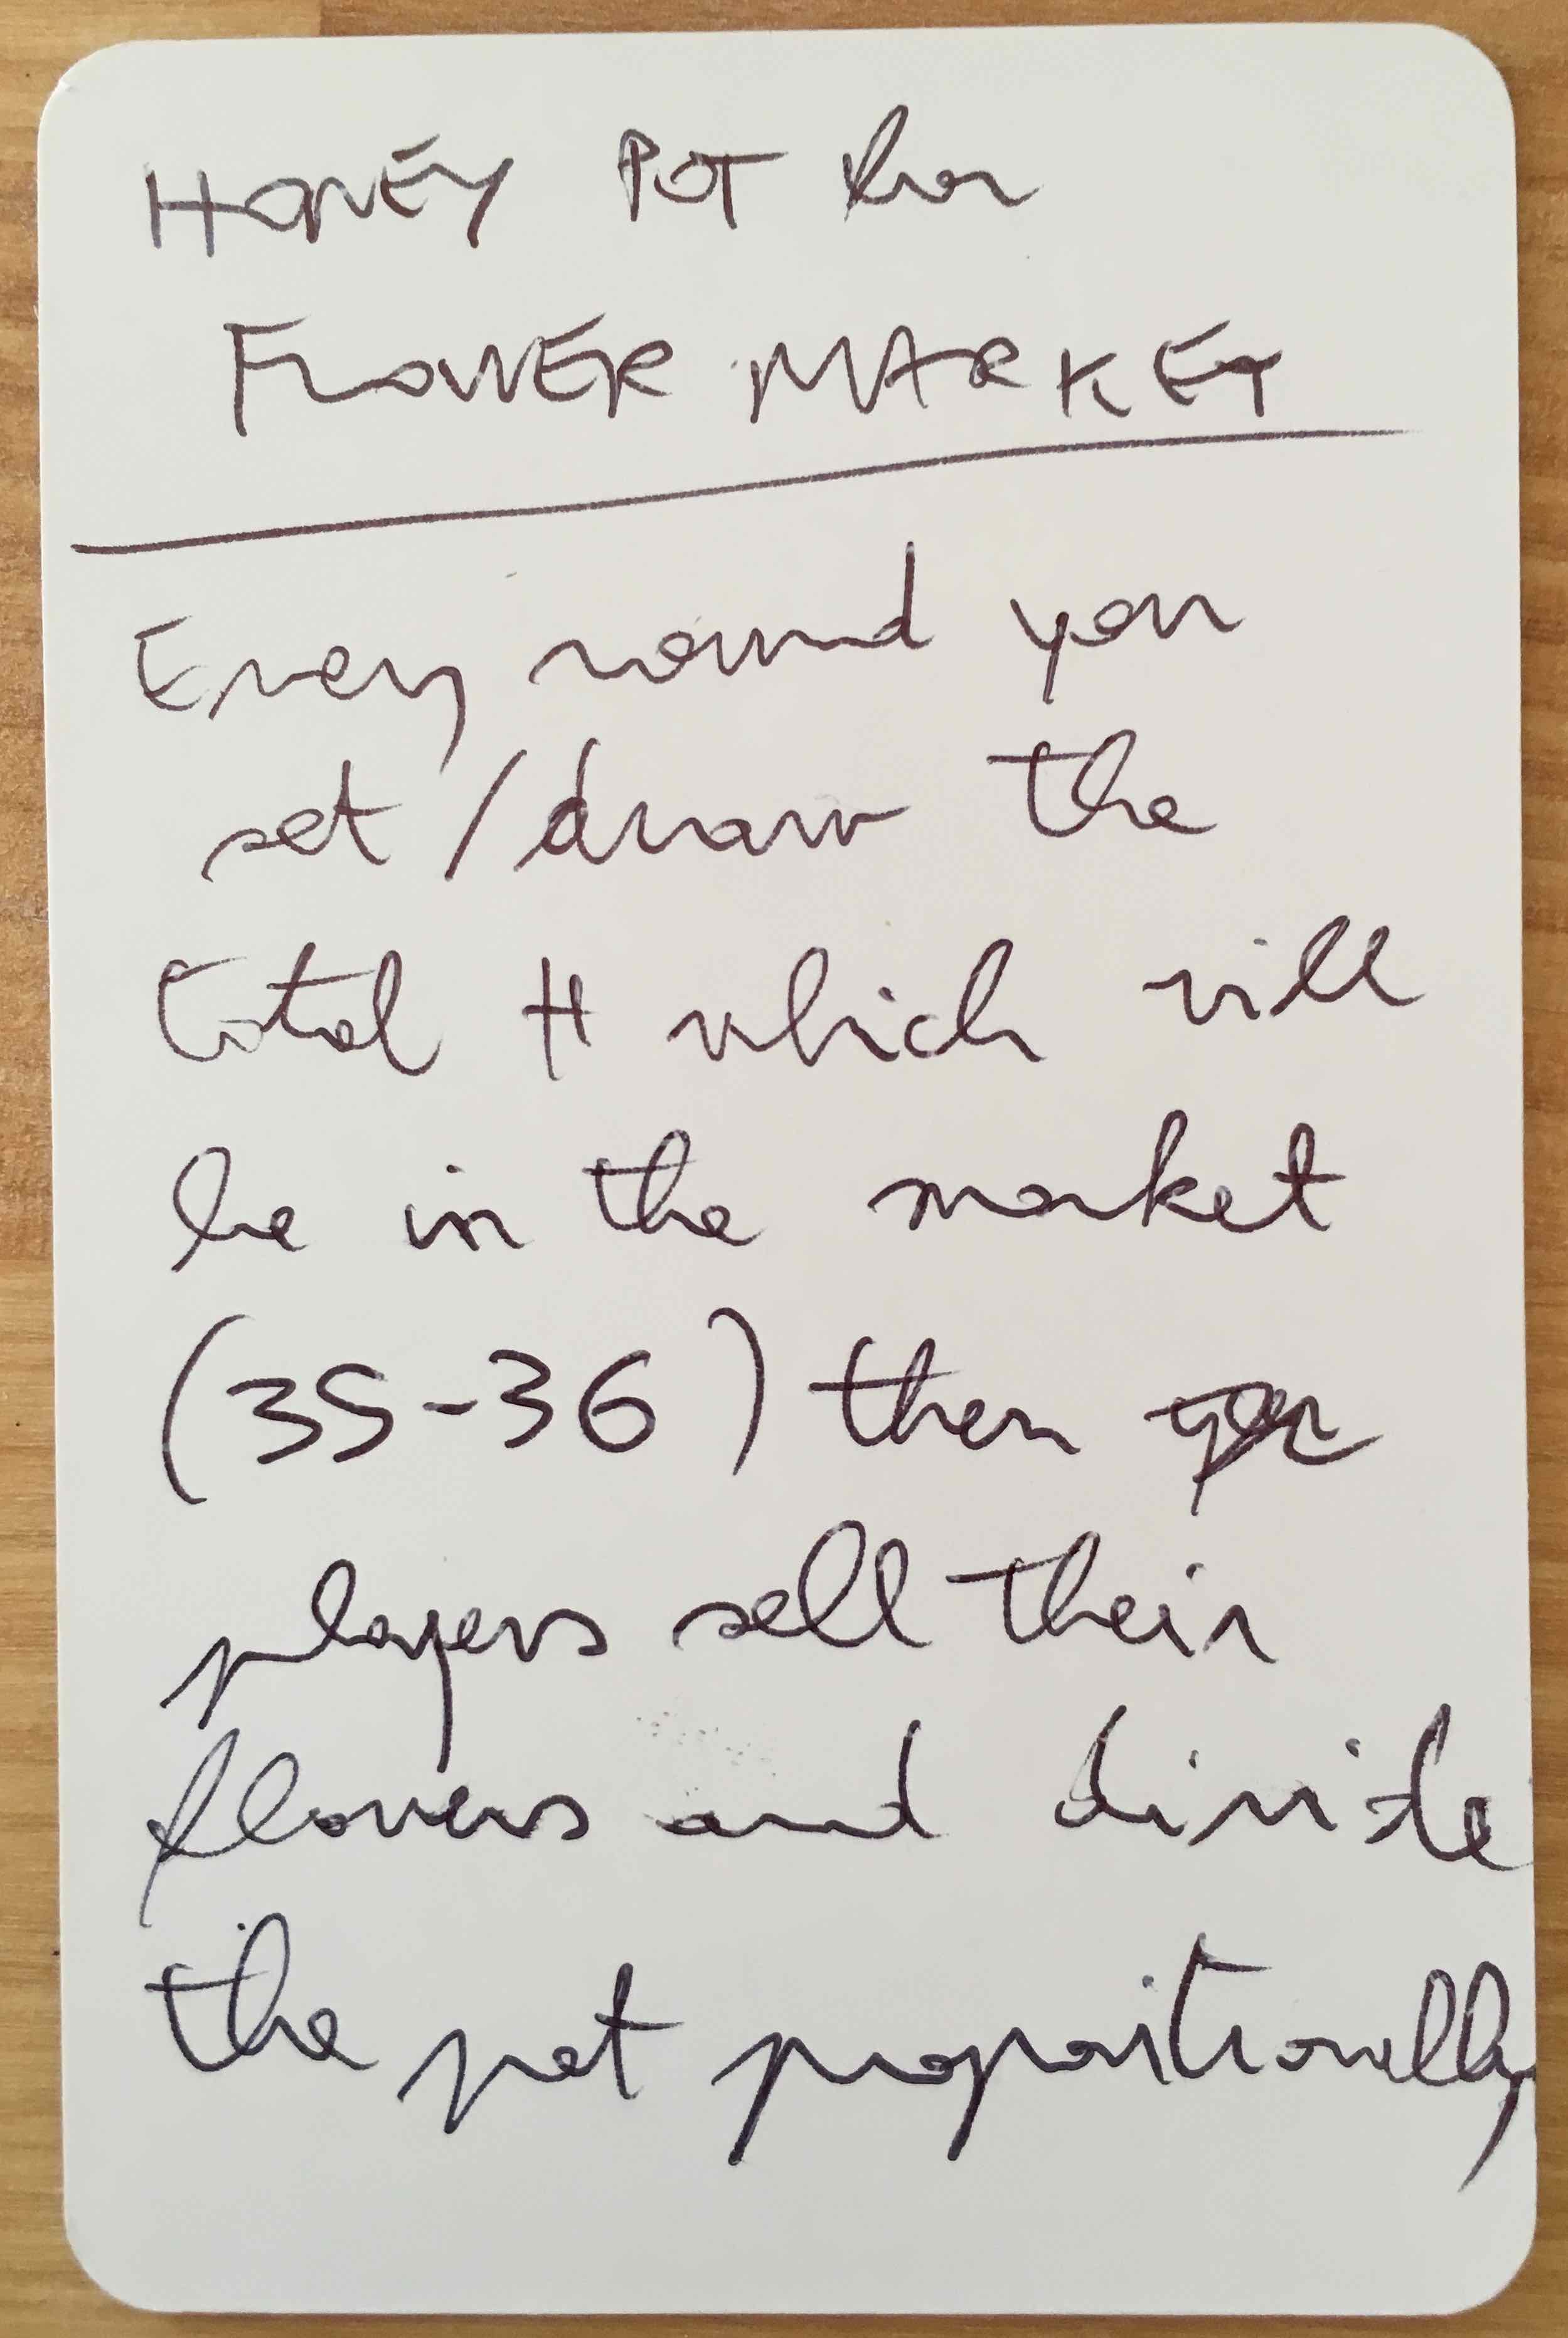 HONEY POT for
FLOWER MARKET
Every round you
set / draw the
total # which will
be in the market
(35-36) then
players sell their
flowers and divide
the pot proportionally